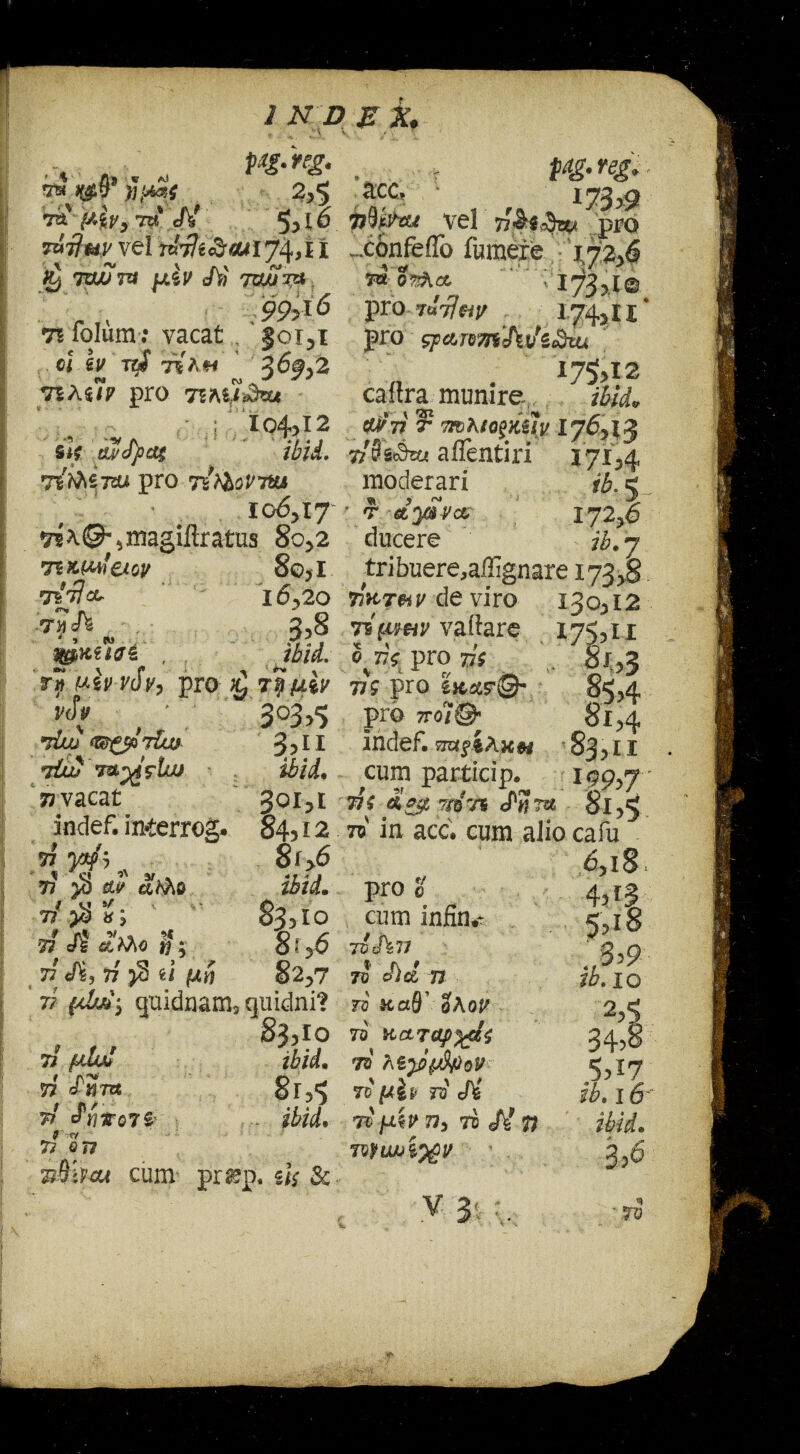 INDEX.
pag. reg.
τὰ καθ' ἡμᾶς 2,5
τὰ μὲν, τὰ δὲ 5,16
τάττειν vel τάττεσθαι 174,11
καὶ ταῦτα μὲν δὴ ταῦτα
99,16
τε solùm: vacat 301,1
οἱ ἐν τῷ τέλει 369,2
τελεῖν pro τελεῖσθαι
104,12
εἰς ἄνδρας ibid.
τέλλεται pro τέλλονται
106,17
τέλος, magistratus 80,2
τεκμήριον 80,1
τέττα 16,20
τῇδε 3,8
κακεῖσε ibid.
τῇ μὲν νῦν, pro καὶ τῇ μὲν
νῦν 303,5
τὴν πρώτην 3,11
τὴν ταχίστην ibid.
τι vacat 301,1
indef. interrog. 84,12
τί γάρ; 81,6
τί γὰρ ἂν ἄλλο ibid.
τί γὰρ οὔ; 83,10
τί δὲ ἄλλο ἤ; 81,6
τί δὲ, τί γὰρ εἰ μὴ 82,7
τί μήν; quidnam, quidni?
83,10
τί μὴν ibid.
τί δῆτα 81,5
τί δήποτε ibid.
τί ὅτι
τιθέναι cum præp. εἰς &
pag. reg.
acc. 173,9
τιθέναι vel τίθεσθαι pro
confesso sumere 172,6
τὰ ὅπλα 173,10
pro τάττειν 174,11
pro στρατοπεδεύεσθαι
175,12
castra munire ibid.
ἀντὶ τοῦ πολιορκεῖν 176,13
τίθεσθαι assentiri 171,4
moderari ib. 5
τὸν ἀγῶνα 172,6
ducere ib. 7
tribuere, assignare 173,8
τίκτειν de viro 130,12
τέμνειν vastare 175,11
ὅ τις pro τίς 81,3
τὶς pro ἕκαστος 85,4
pro ποῖος 81,4
indef. παρέλκει 83,11
cum particip. 199,7
τίς ἄρα ποτε δῆτα 81,5
τὸ in acc. cum alio casu
6,18
pro ὃ 4,13
cum infin. 5,18
τὸ δέ τι 3,9
τὸ διά τι ib. 10
τὸ καθ' ὅλον 2,5
τὸ καταρχὰς 34,8
τὸ λεγόμενον 5,17
τὸ μὲν τὸ δὲ ib. 16
τὸ μέν τι, τὸ δέ τι ibid.
τοὔνεχον 3,6
V 3
τὸ